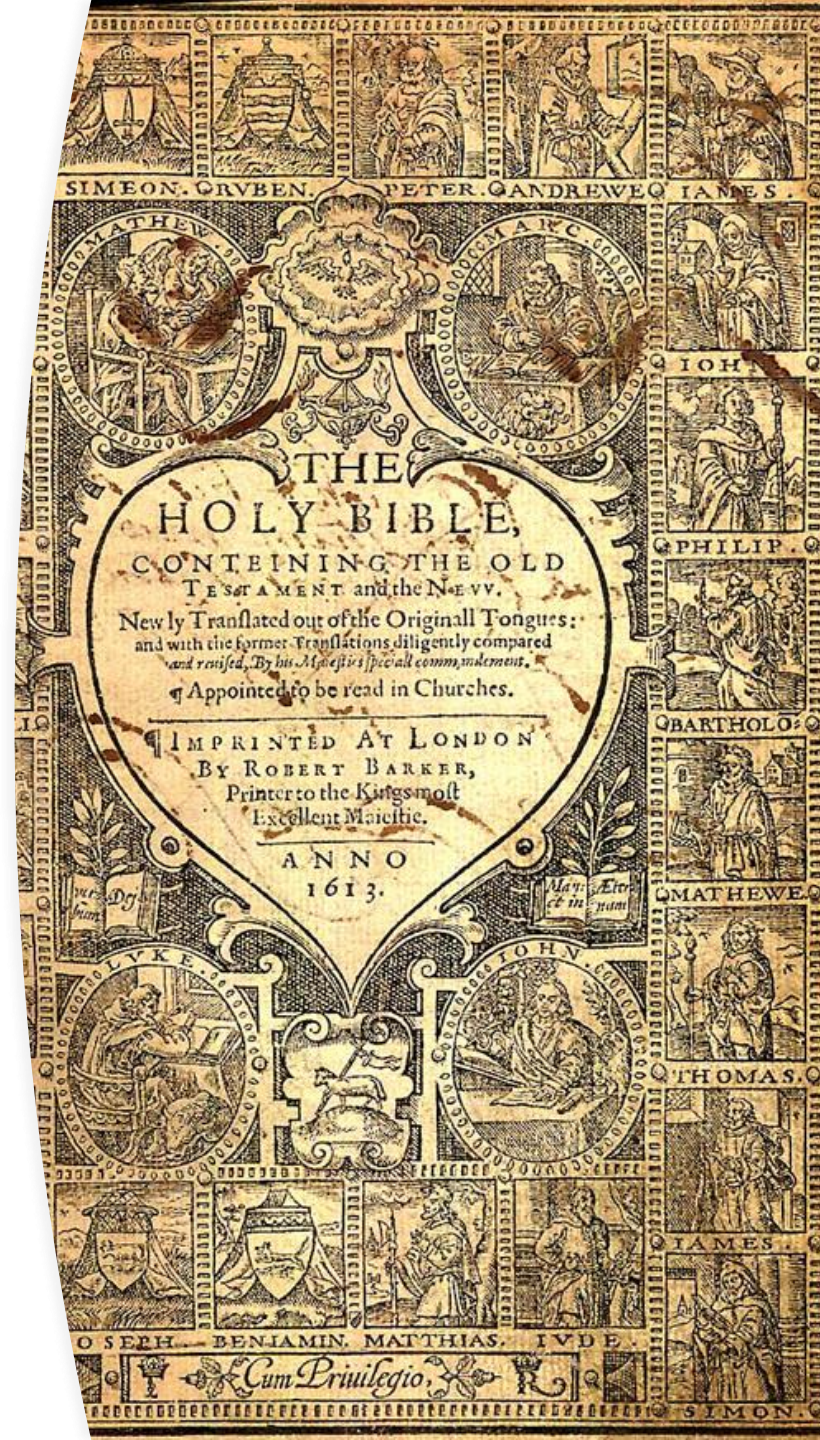 SIMEON. RVBEN. PETER. ANDREWE IAMES
MATHEW.
MARC.
IOHN
PHILIP.
BARTHOLO:
MATHEWE
THOMAS.
IAMES.
SIMON.
THE
HOLY BIBLE,
CONTEINING THE OLD
TESTAMENT and the NEVV.
Newly Tranſlated out of the Originall Tongues:
and with the former Tranſlations diligently compared
and reuiſed, By his Maieſties ſpeciall commandement.
¶ Appointed to be read in Churches.
¶ IMPRINTED AT LONDON
BY ROBERT BARKER,
Printer to the Kings moſt
Excellent Maieſtie.
ANNO
1613.
Ver Dej
bum
Mane Æter
et in num
LVKE.
IOHN.
OSEPH BENIAMIN. MATTHIAS. IVDE
Cum Priuilegio.